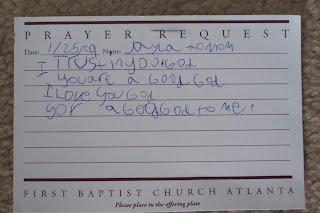 PRAYER REQUEST
Date: 1/25/09 Name: Myra
I TRUSt in you GOd
I youare a GOOd GOd
I Love You God
your a GOdGOd to me!
FIRST BAPTIST CHURCH ATLANTA
Please place in the offering plate